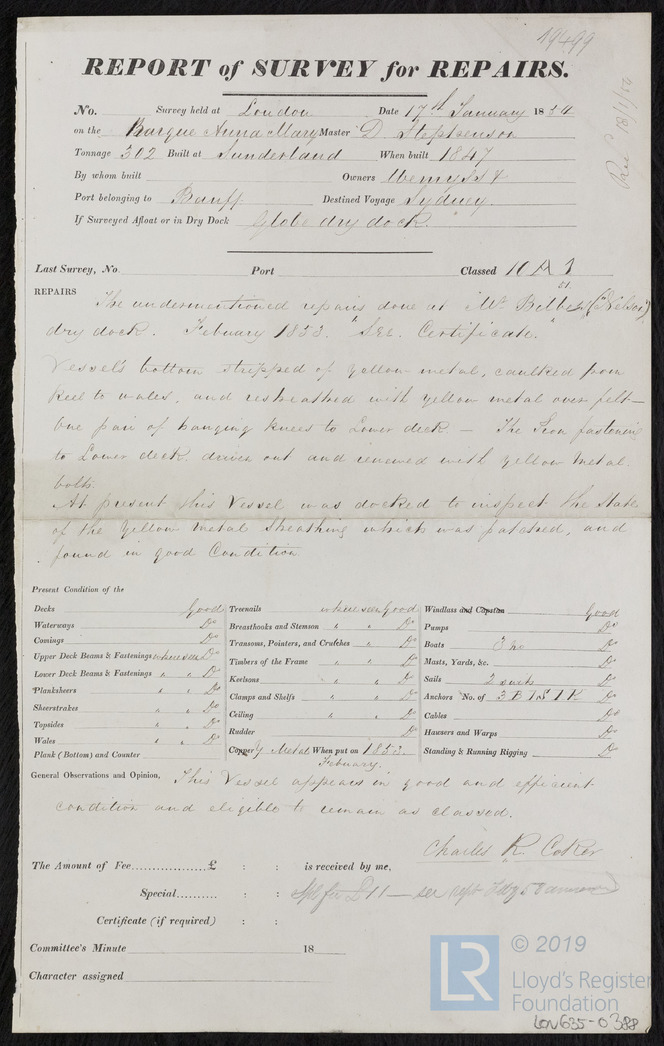 19499
REPORT of SURVEY for REPAIRS.
No. Survey held at London Date 17th January 1854
on the Barque Anna Mary Master D Stephenson
Tonnage 302 Built at Sunderland When built 1847
By whom built Owners Wemyss &
Port belonging to Banff Destined Voyage Sydney.
If Surveyed Afloat or in Dry Dock Globe dry dock.
Last Survey, No. Port Classed 10 A 1
REPAIRS
The undermentioned repairs done at Mr Bilbe's ("Nelson")
dry dock. Febuary 1853. "See Certificate."
Vessel's bottom stripped of yellow metal, caulked from
keel to wales, and resheathed with yellow metal over felt—
One pair of hanging knees to Lower deck — The Iron fastening
to Lower deck driven out and renewed with yellow Metal
bolts.
At present this Vessel was docked to inspect the state
of the Yellow Metal Sheathing which was patched, and
found in good Condition
Present Condition of the
Decks Good
Waterways Do
Comings Do
Upper Deck Beams & Fastenings where seen Do
Lower Deck Beams & Fastenings " " Do
Planksheers " " Do
Sheerstrakes " " Do
Topsides " " Do
Wales " " Do
Plank (Bottom) and Counter
Treenails where seen Good
Breasthooks and Stemson " " Do
Transoms, Pointers, and Crutches " " Do
Timbers of the Frame " " Do
Keelsons " " Do
Clamps and Shelfs " " Do
Ceiling " " Do
Rudder Do
Copper Y Metal When put on 1853
Febuary.
Windlass and Capstan Good
Pumps Do
Boats 3 no Do
Masts, Yards, &c. Do
Sails 2 suits Do
Anchors No. of 3 B 1 S 1 K Do
Cables Do
Hawsers and Warps Do
Standing & Running Rigging Do
General Observations and Opinion, This Vessel appears in good and efficient
condition and eligible to remain as classed.
Charles R. Coker
The Amount of Fee..................£ : : is received by me,
Special.......... : : Spl fee £11 — see rept
Certificate (if required) : :
Committee's Minute 18
Character assigned
LR © 2019
Lloyd's Register
Foundation
LON635-0388